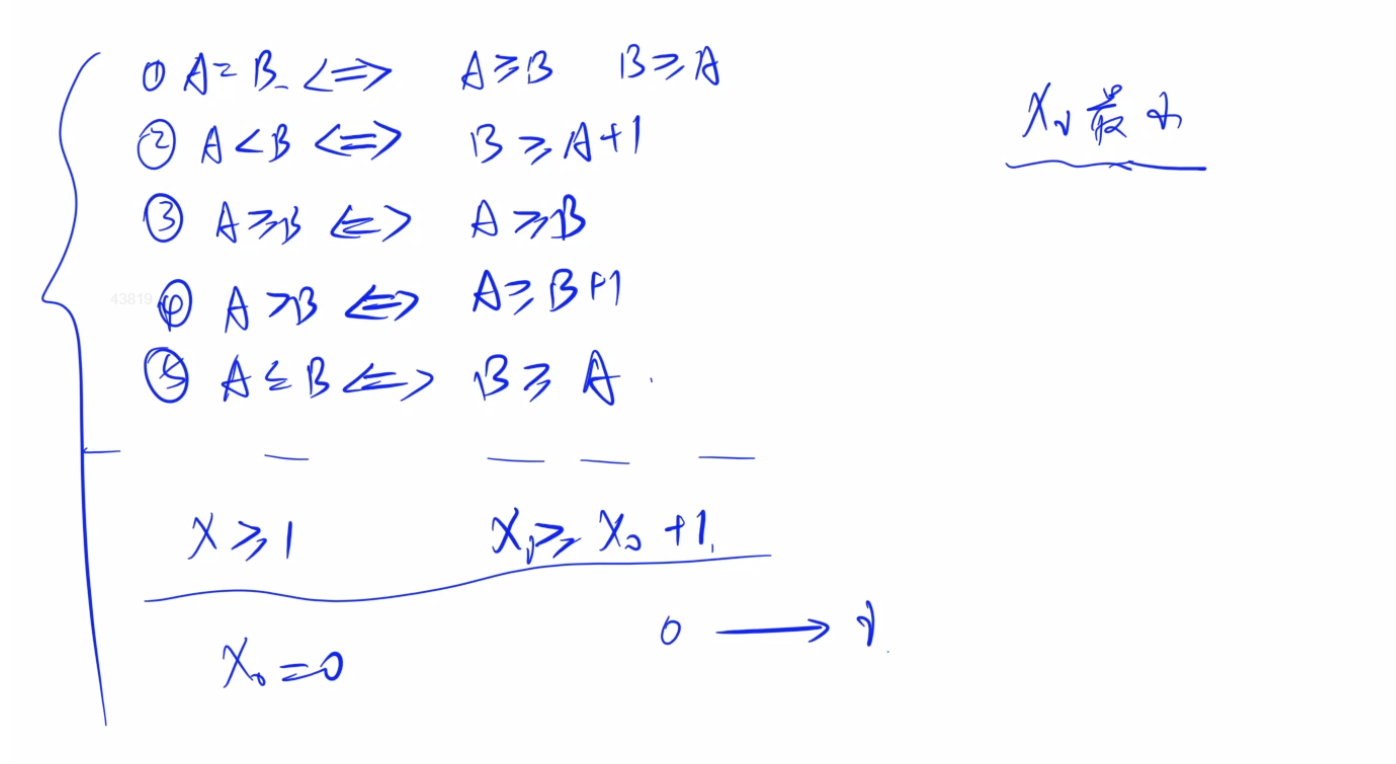 ① A = B <=> A ≥ B B ≥ A
② A < B <=> B ≥ A+1
③ A ≥ B <=> A ≥ B
④ A > B <=> A ≥ B+1
⑤ A ≤ B <=> B ≥ A
X ≥ 1 Xᵢ ≥ X₀ + 1
X₀ = 0 0 → i
Xᵢ 最小
43819